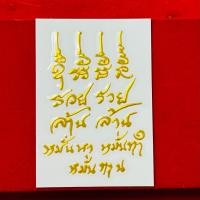 รวย รวย
ล้าน ล้าน
หมั่นหา หมั่นทำ
หมั่นทาน